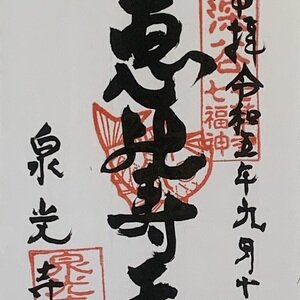 奉拝 令和五年九月十
深谷七福神
恵比寿天
泉光寺
泉光